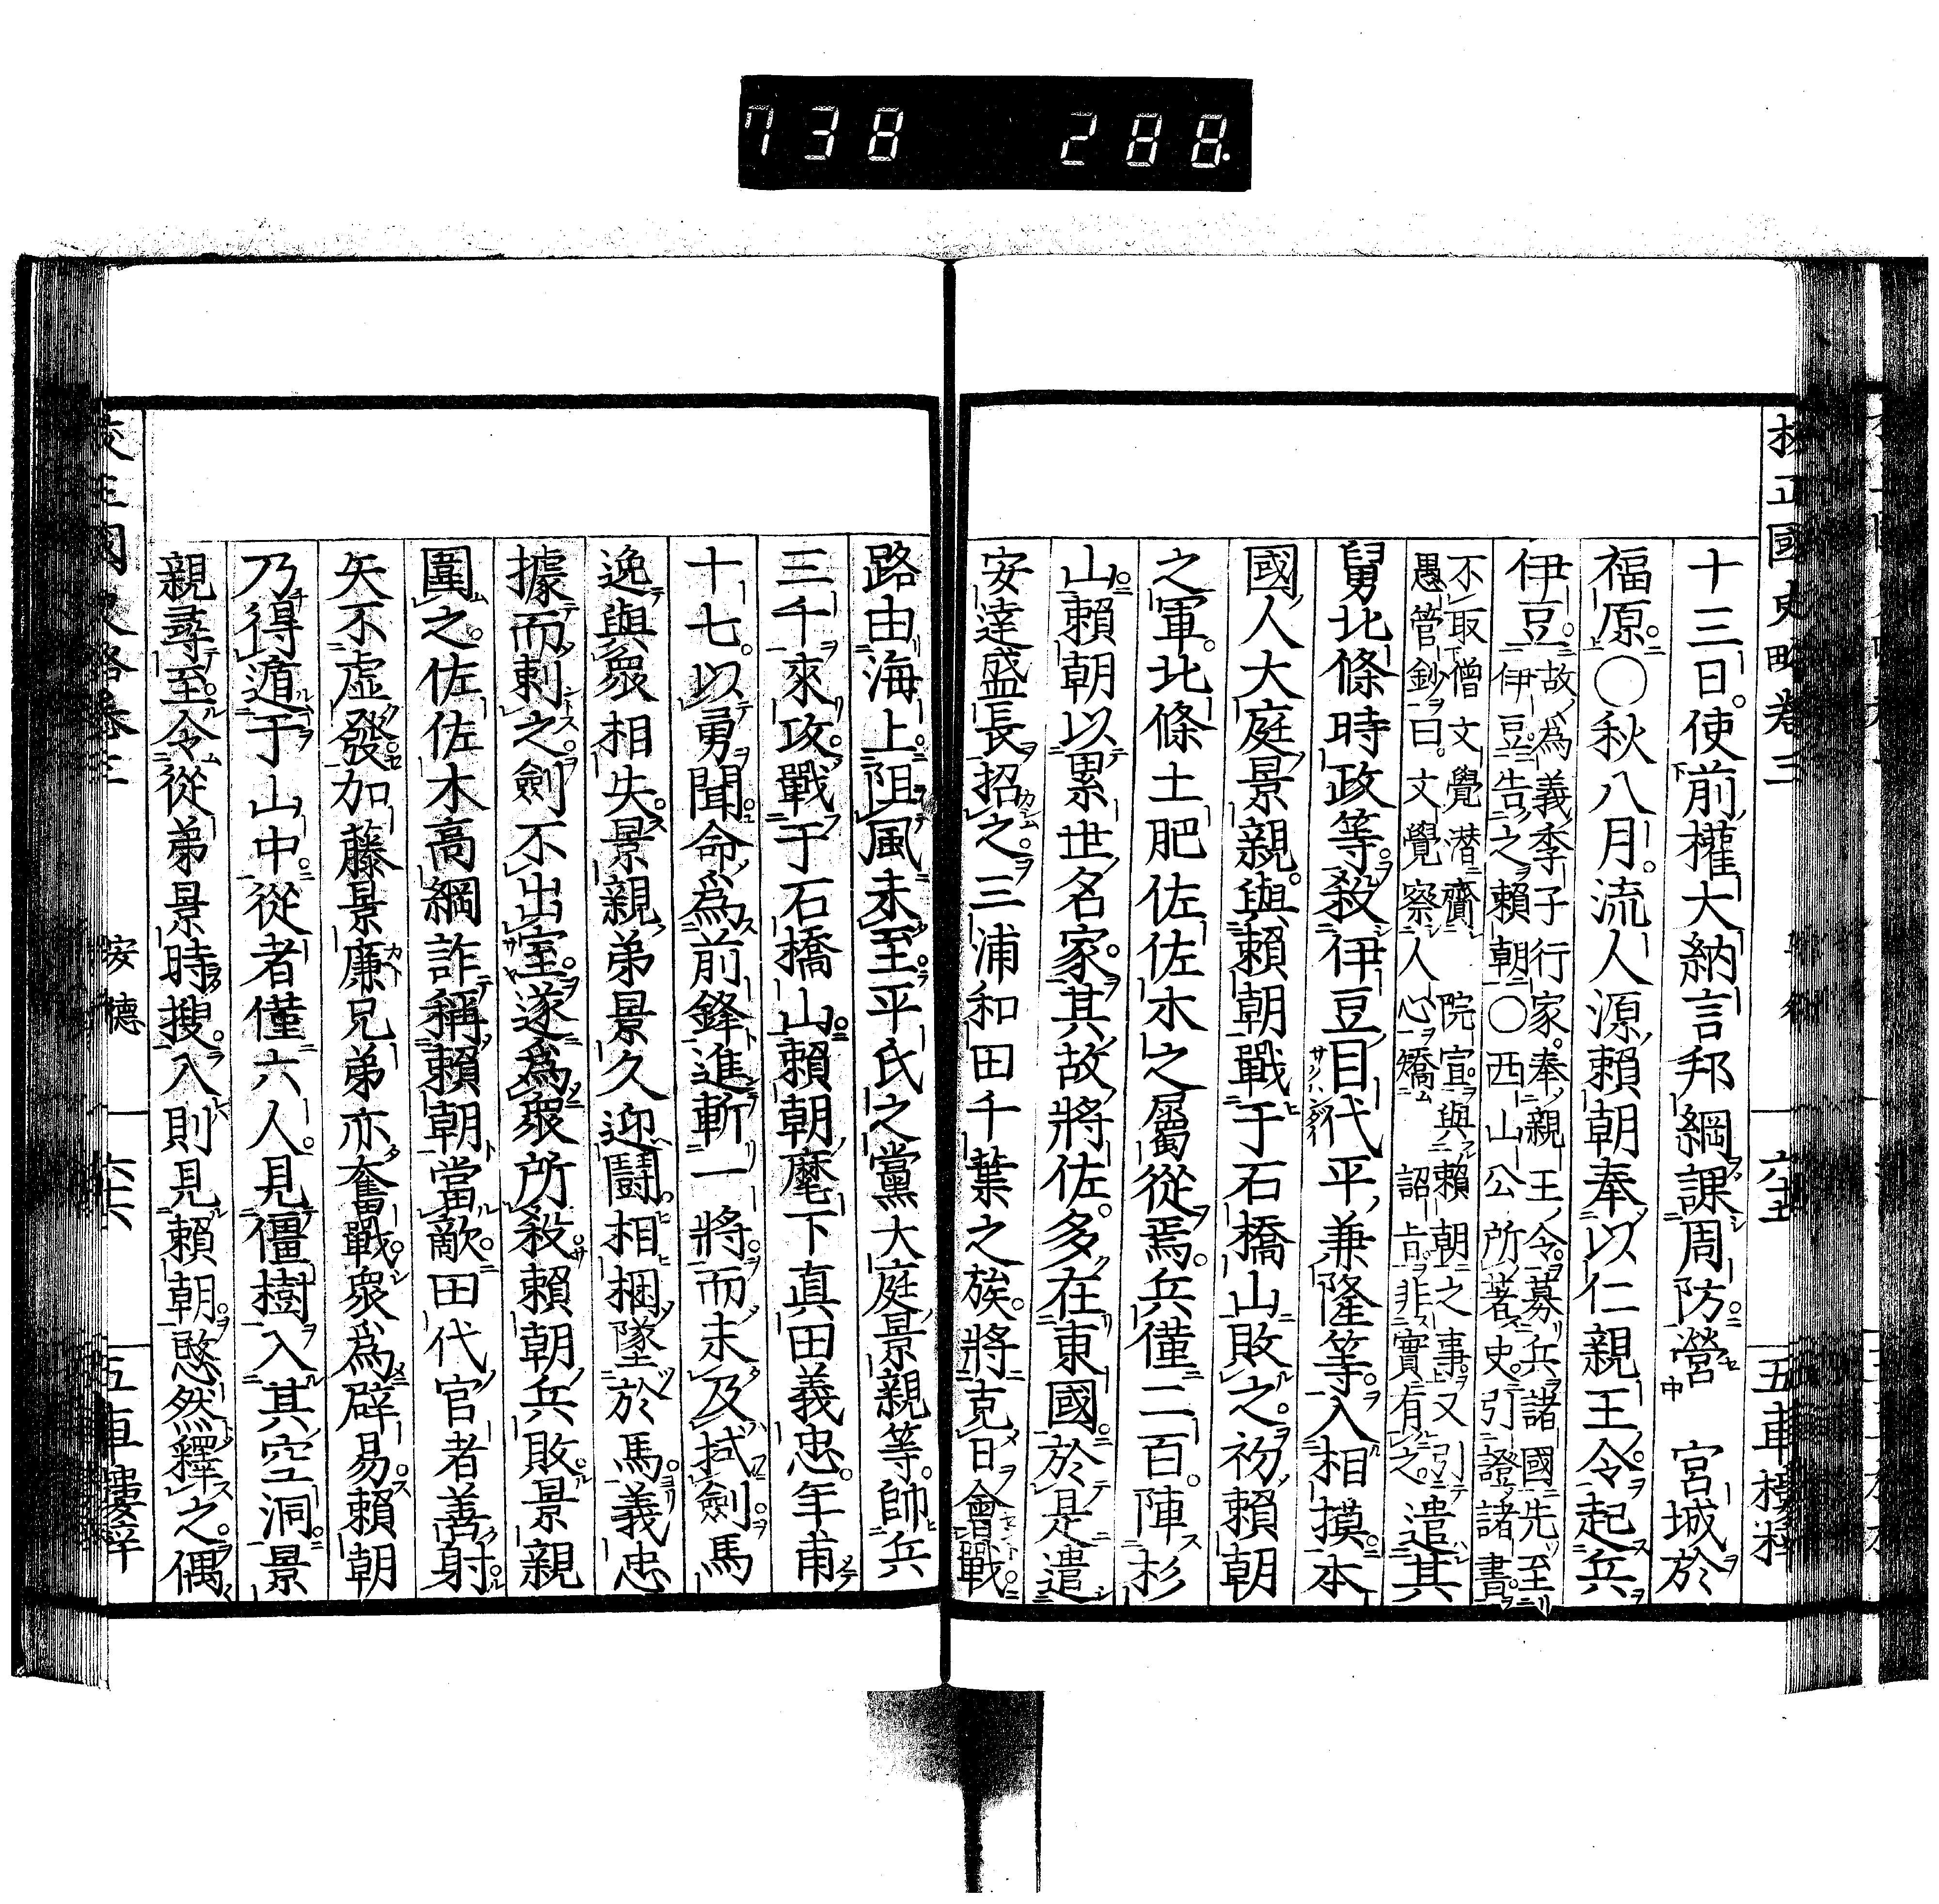 738 288
校正國史略卷三 六十五 五車樓梓
十三日。使前權大納言邦綱課周防營 宮城於
福原。〇秋八月。流人源賴朝奉以仁親王令起兵
伊豆。故為義季子行家。奉親王令。募兵諸國先至
伊豆。告之賴朝〇西山公所著史。引證諸書。
不取僧文覺潛齎 院宣。與賴朝之事。又引
愚管鈔曰。文覺察人心矯 詔旨非實有之。遣其
舅北條時政等。殺伊豆目代平兼隆等。入相摸。本
國人大庭景親。與賴朝戰于石橋山敗之。初賴朝
之軍。北條土肥佐佐木之屬從焉。兵僅三百。陣杉
山。賴朝以累世名家。其故將佐。多在東國。於是遣
安達盛長招之。三浦和田千葉之族。將克日會戰
路由海上。阻風未至。平氏之黨大庭景親等。帥兵
三千來攻。戰于石橋山。賴朝麾下真田義忠。年甫
十七。以勇聞。命為前鋒進斬一將。而未及拭劍。馬
逸與眾相失。景親弟景久迎鬪。相梱墜於馬。義忠
據而剌之。劍不出室。遂為眾所殺。賴朝兵敗。景親
圍之。佐佐木高綱詐稱賴朝當敵。田代官者善射
矢不虛發。加藤景廉兄弟亦奮戰。眾為辟易。賴朝
乃得遁于山中。從者僅六人。見僵樹入其空洞。景
親尋至。令從弟景時搜。入則見賴朝。愍然釋之。偶
安德 六十六